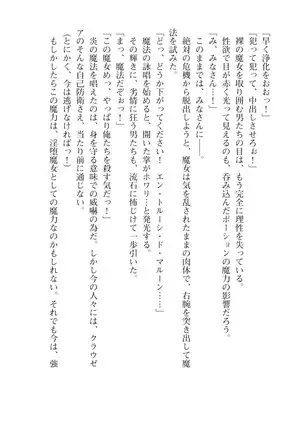 「早く浄化をおおっ！」
「犯って犯って、中出しさせろぉ！」
裸の魔女を取り囲む男たちの目は、もう完全に理性を失っている。
性欲で目が赤く光って見えるのも、呑み込んだポーションの魔力の影響だろう。
「み、みなさん！」
このままでは、みなさんに――。
絶対の危機から脱出しようと、魔女は気を乱されたままの肉体で、右腕を突き出して魔
法を試みた。
「どっ、どうか下がってください！　エン・トルーシ・ド・マルーン……」
魔法の詠唱を始めると、開いた掌がホワリ…と発光する。
その輝きに、劣情に狂う男たちも、流石に怖じけて一歩引いた。
「まっ、魔法だぞっ！」
「この魔女め、やっぱり俺たちを殺す気だっ！」
炎の魔法を唱えたのは、身を守る意味での威嚇の為だ。しかし今の人々には、クラウゼ
アのそんな自己防衛さえ、当たり前に通じない。
（とにかく、今は逃げなければっ！）
もしかしたらこの魔力は、淫堕魔女としての魔力なのかもしれない。それでも今は、強